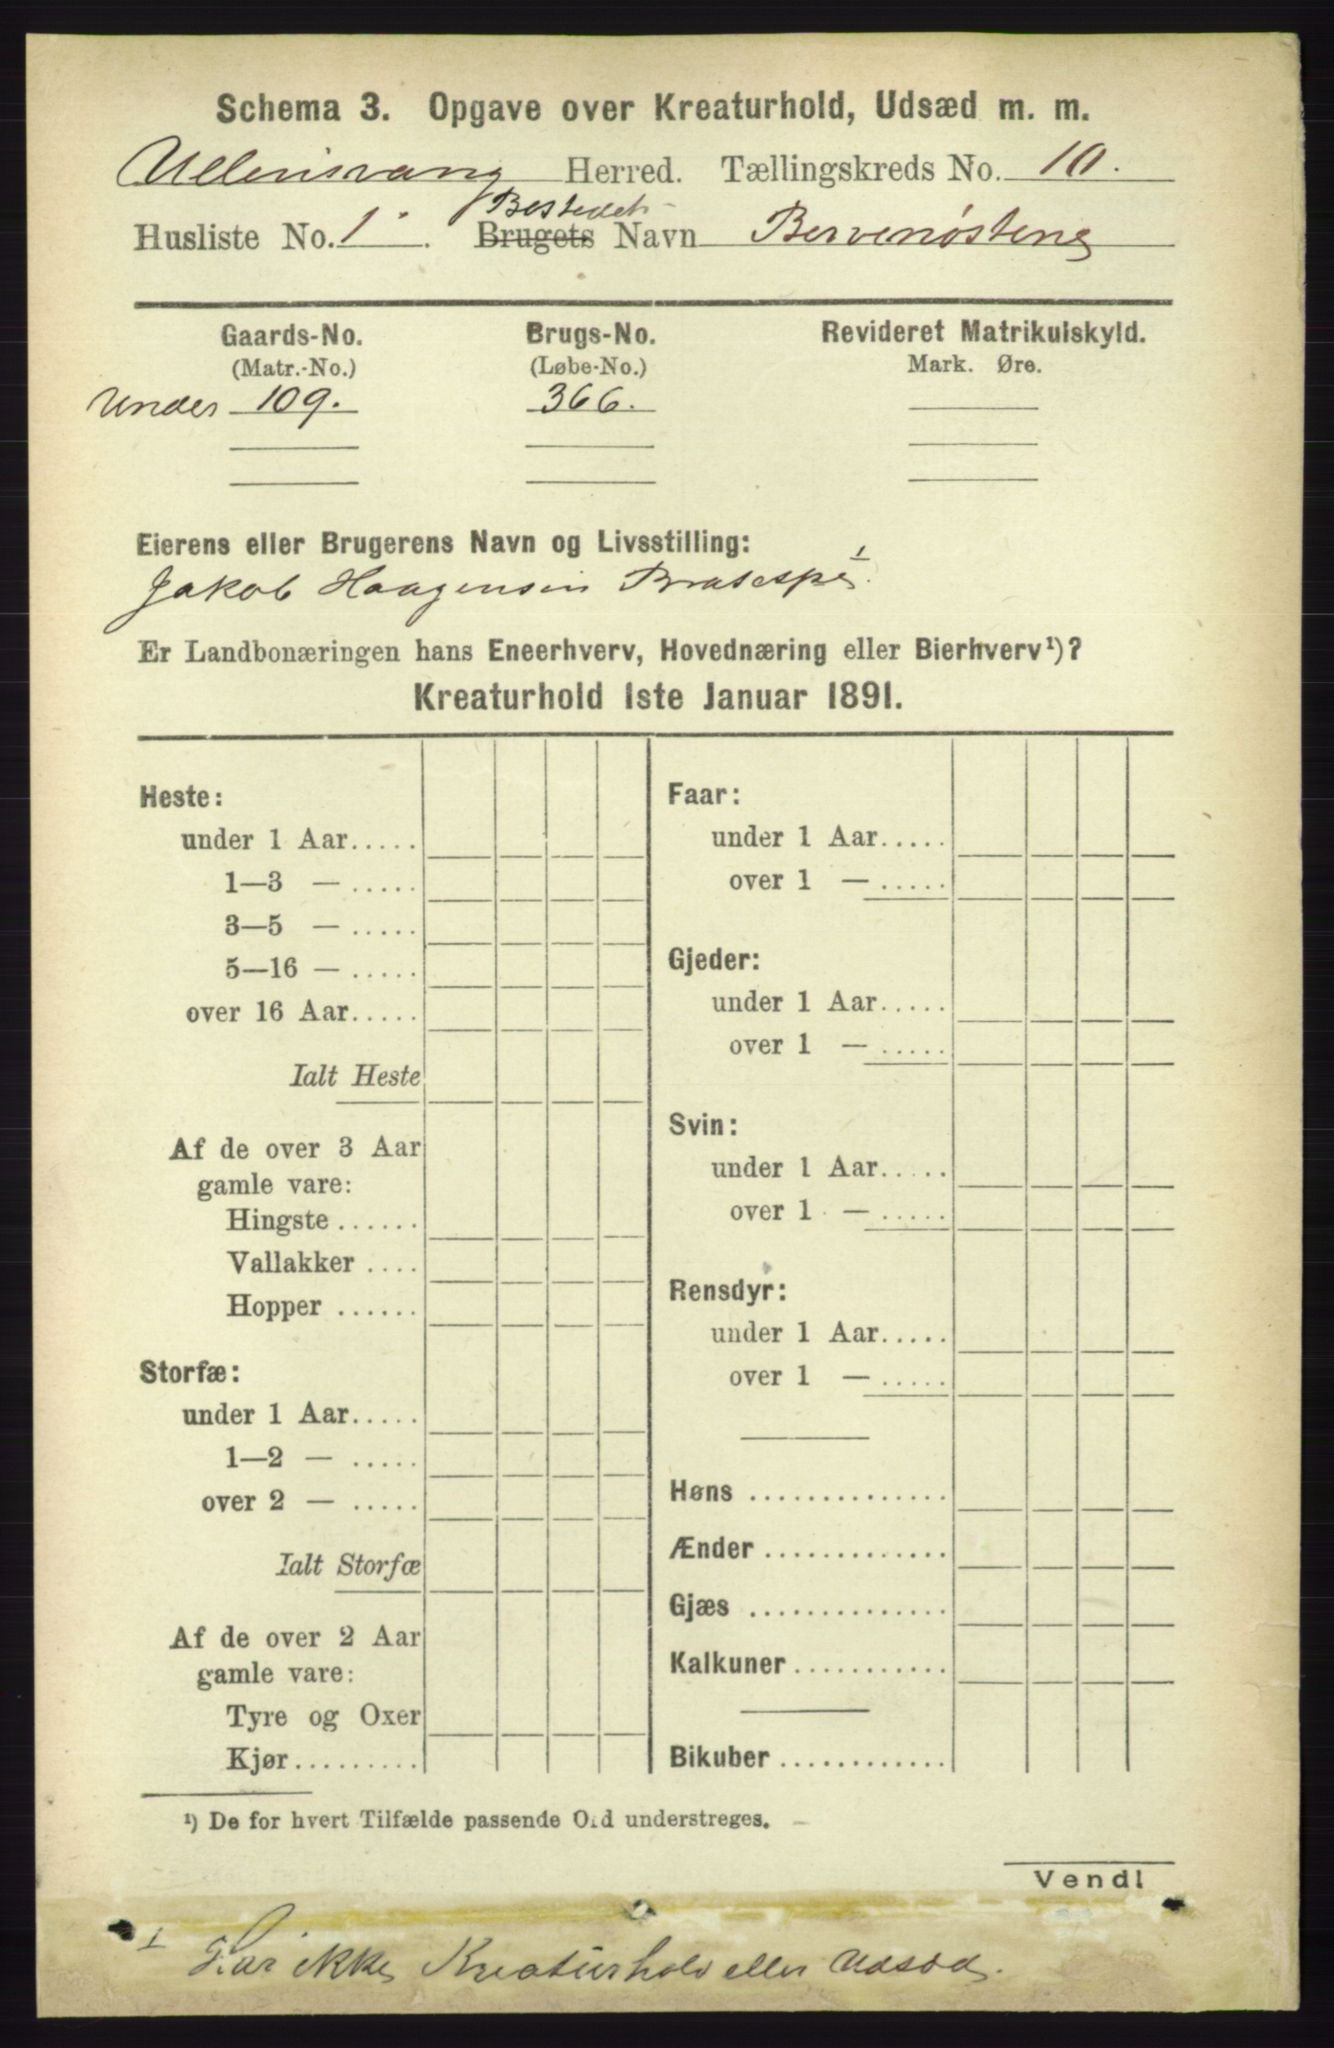 Schema 3. Opgave over Kreaturhold, Udsæd m. m.
Ullensvang Herred. Tællingskreds No. 10.
Bostedet
Husliste No. 1. Brugets Navn
Gaards-No. Brugs-No. Revideret Matrikulskyld.
(Matr.-No.) (Løbe-No.) Mark. Øre.
Under 109. 366.
Eierens eller Brugerens Navn og Livsstilling:
Jakob Haagensen 1
Er Landbonæringen hans Eneerhverv, Hovednæring eller Bierhverv¹)?
Kreaturhold 1ste Januar 1891.
Heste:
under 1 Aar.....
1—3 — .....
3—5 — .....
5—16 — .....
over 16 Aar.....
Ialt Heste
Af de over 3 Aar
gamle vare:
Hingste ......
Vallakker ....
Hopper ......
Storfæ:
under 1 Aar.....
1—2 — .....
over 2 — .....
Ialt Storfæ
Af de over 2 Aar
gamle vare:
Tyre og Oxer
Kjør.........
Faar:
under 1 Aar.....
over 1 — .....
Gjeder:
under 1 Aar.....
over 1 — .....
Svin:
under 1 Aar.....
over 1 — .....
Rensdyr:
under 1 Aar.....
over 1 — .....
Høns ..............
Ænder .............
Gjæs ..............
Kalkuner...........
Bikuber ............
¹) De for hvert Tilfælde passende Ord understreges.
Vend!
1 Har ikke Kreaturhold eller Udsæd.